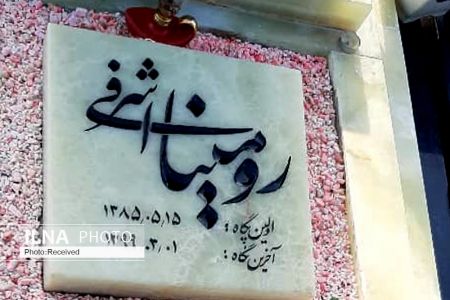 رومینا اشرفی
اولین پگاه: ۱۳۸۵.۰۵.۱۵
آخرین نگاه: ۱۳۹۹.۰۳.۰۱
ILNA PHOTO
Photo:Received